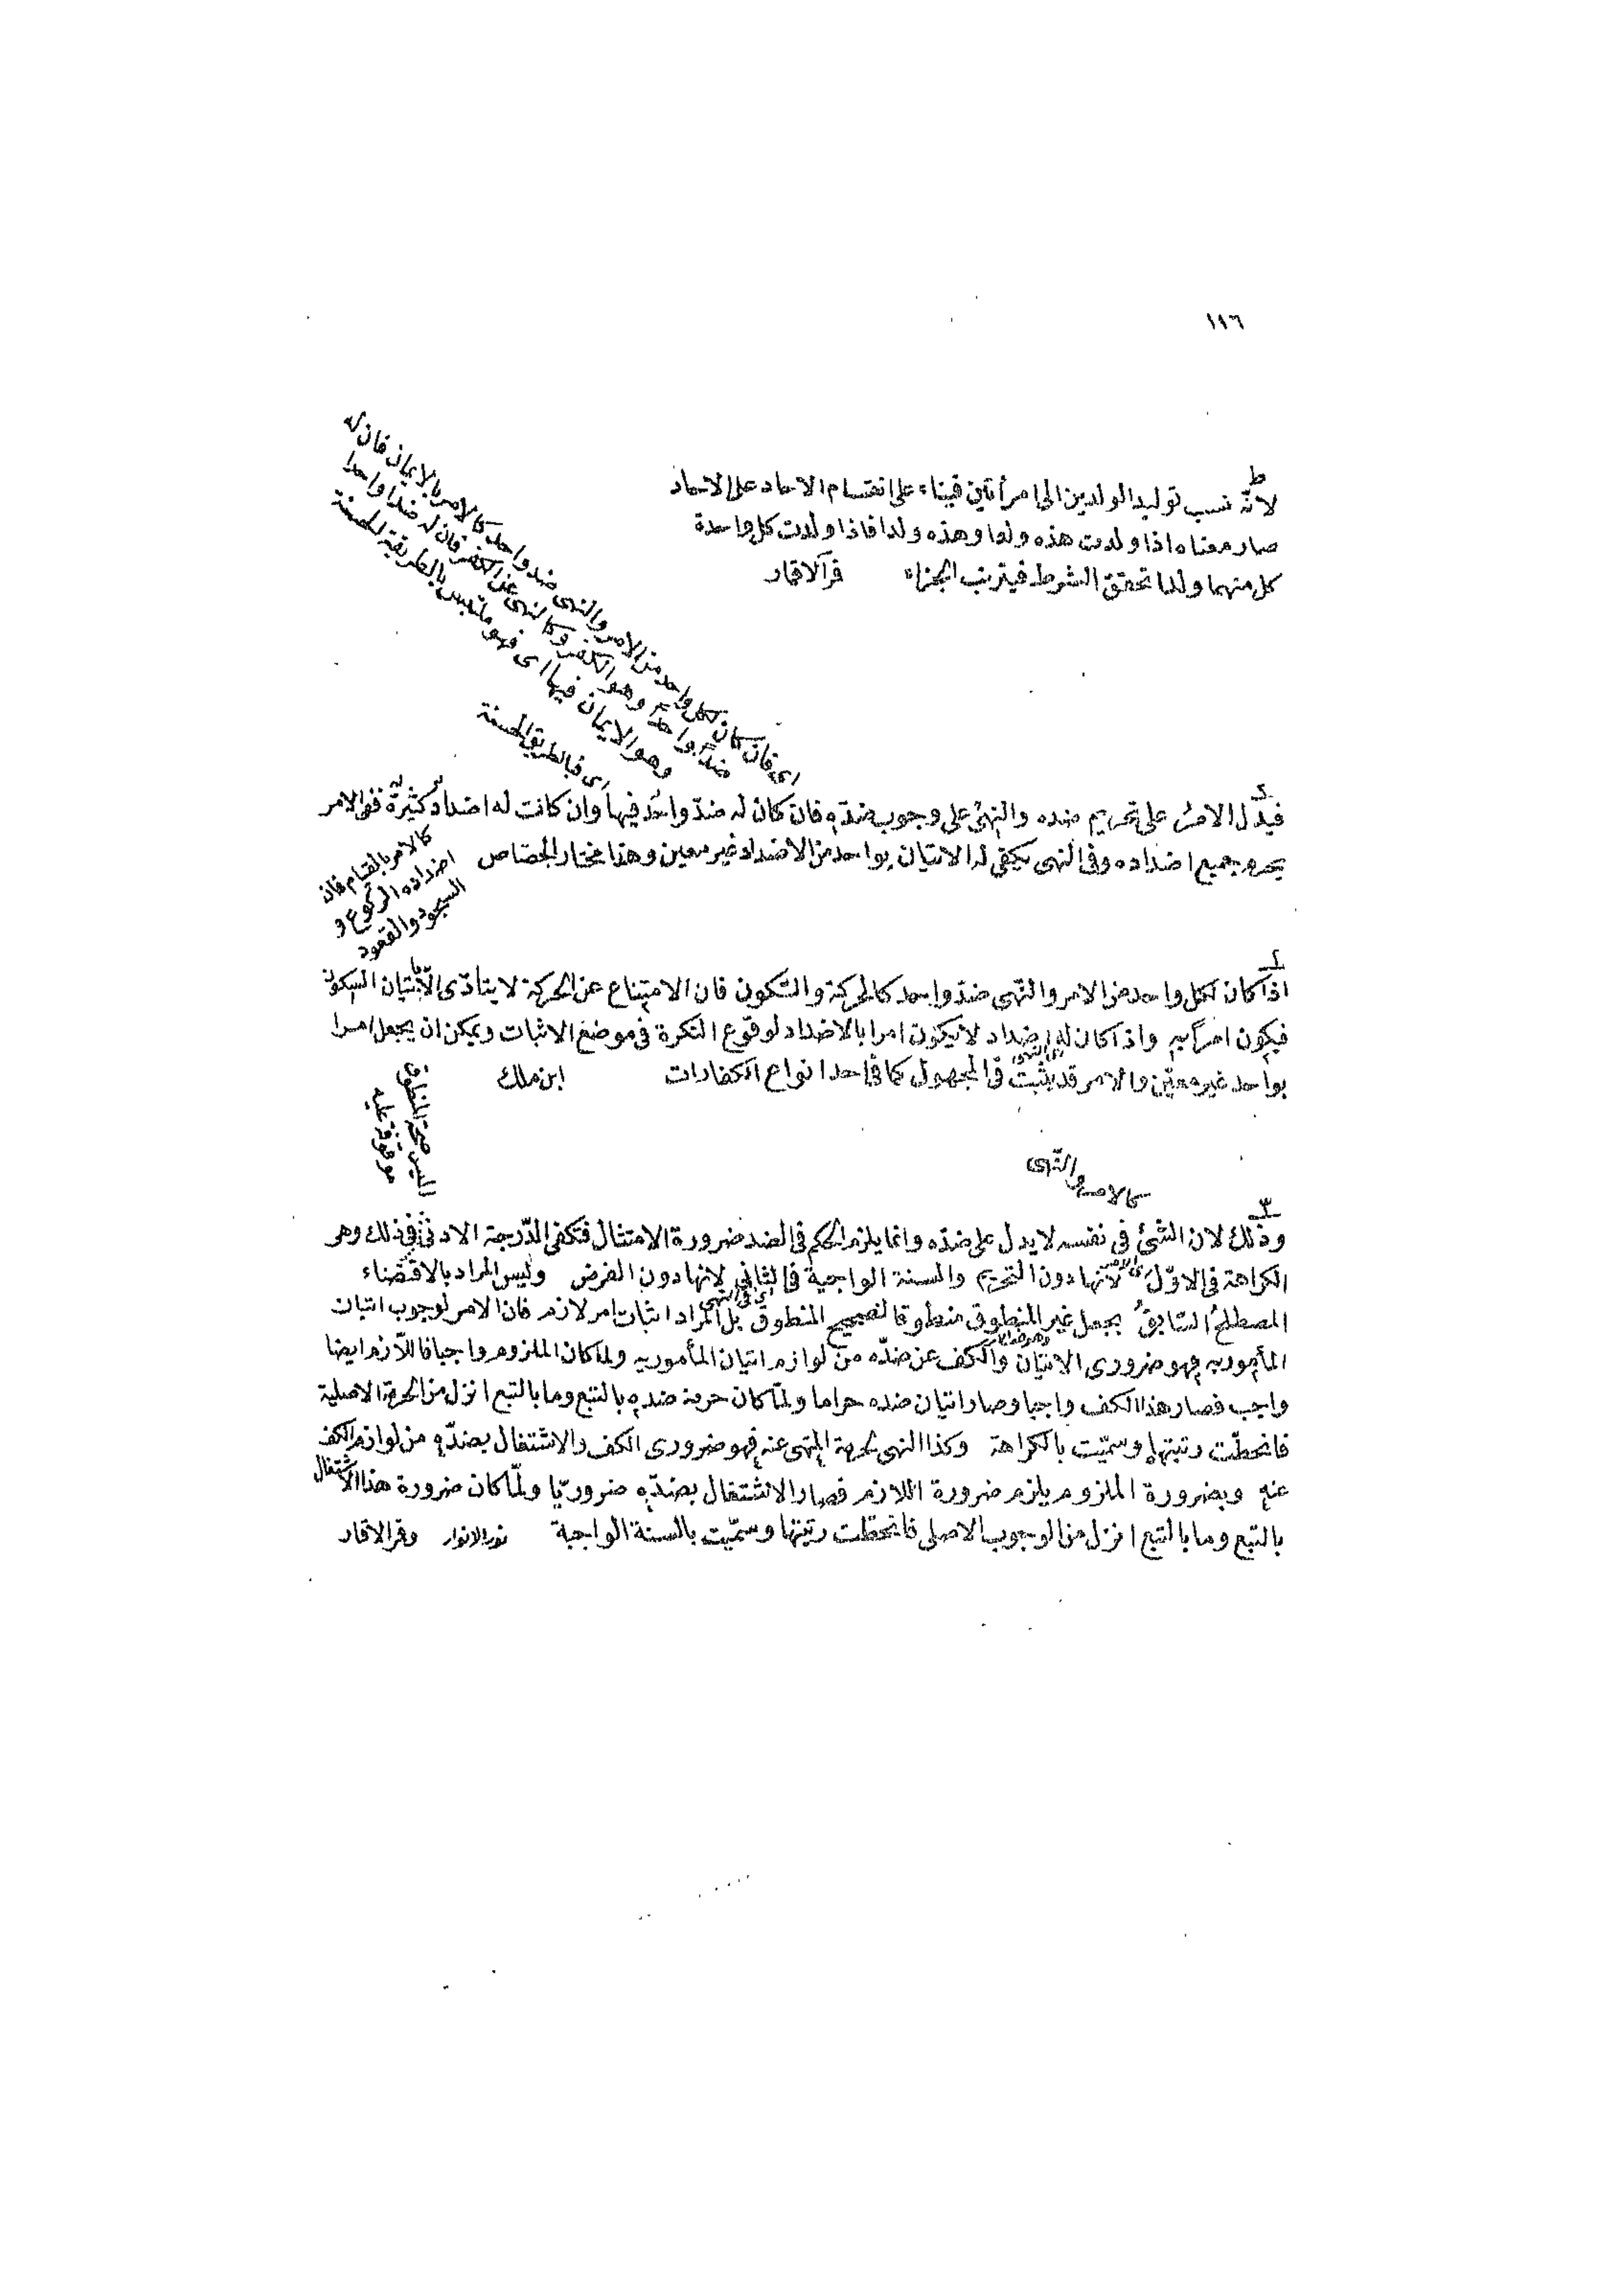 ١١٦
ط
لانّه نسب توليد الولدين الى امرأتين فبناء على انقسام الاحاد على الاحاد
صار معناه اذا ولدت هذه ولدا وهذه ولدا فاذا ولدت كل واحدة
كل منهما ولدا تحقق الشرط فيترتب الجزاء قمر الاقمار
اى فان كان لكل واحد من الامر والنهى ضد واحد كالامر بالايمان فان له
ضدّا واحدا وهو الكفر وكالنهى عن الكفر فان له ضدا واحدا
وهو الايمان فبها اى فهو ملتبس بالطريقة الحسنة
اى فبالطريق الحسنة
فيدّل الامرُ على تحريم ضده والنهىُ على وجوب ضدّه فان كان له ضدّ واحدٌ فبها وان كانت له اضدادٌ كثيرةٌ ففى الامر
يحرم جميع اضداده وفى النهى يكفى له الاتيان بواحد من الاضداد غير معين وهذا مختار الجصّاص
كالامر بالقيام فان
اضداده الركوع و
السجود والقعود
اذا كان لكل واحد من الامر والنّهى ضدّ واحد كالحركة والسّكون فان الامتناع عن الحركة لا يتأدّى الّا باتيان السكون
فيكون امراً به واذا كان له اضداد لا يكون امرا بالاضداد لوقوع النكرة فى موضع الاثبات ويمكن ان يجعل امرا
بواحد غير معيّن والامر قد يثبت فى المجهول كما فى احد انواع الكفارات ابن ملك
صحة المنطوق
موقوفة عليه
كالامر والنّهى
٣
وذلك لان الشئ فى نفسه لا يدل على ضدّه وانما يلزم الحكم فى الضد ضرورة الامتثال فتكفى الدّرجة الادنى فى ذلك وهى
الكراهة فى الاوّل لانها دون التحريم والسنة الواجبة فى الثانى لانها دون الفرض وليس المراد بالاقتضاء
اى فى النهى
المصطلحُ السّابقُ بجعل غير المنطوق منطوقا لتصحيح المنطوق بل المراد اثبات امر لازم فان الامر لوجوب اتيان
المأمور به فهو ضرورى الاتيان والكف عن ضدّه من لوازم اتيان المأمور به ولما كان الملزوم واجبا فاللّازم ايضا
واجب فصار هذا الكف واجبا وصار اتيان ضده حراما ولمّا كان حرمة ضده بالتبع وما بالتبع انزل من الحرمة الاصلية
فانحطّت رتبتها وسمّيت بالكراهة وكذا النهى لحرمة المنهى عنه فهو ضرورى الكف والاشتغال بضدّه من لوازم الكف
عنه وبضرورة الملزوم يلزم ضرورة اللازم فصار الاشتغال بضدّه ضروريّا ولمّا كان ضرورة هذا الاشتغال
بالتبع وما بالتبع انزل من الوجوب الاصلى فانحطت رتبتها وسمّيت بالسنة الواجبة نور الانوار وقمر الاقمار